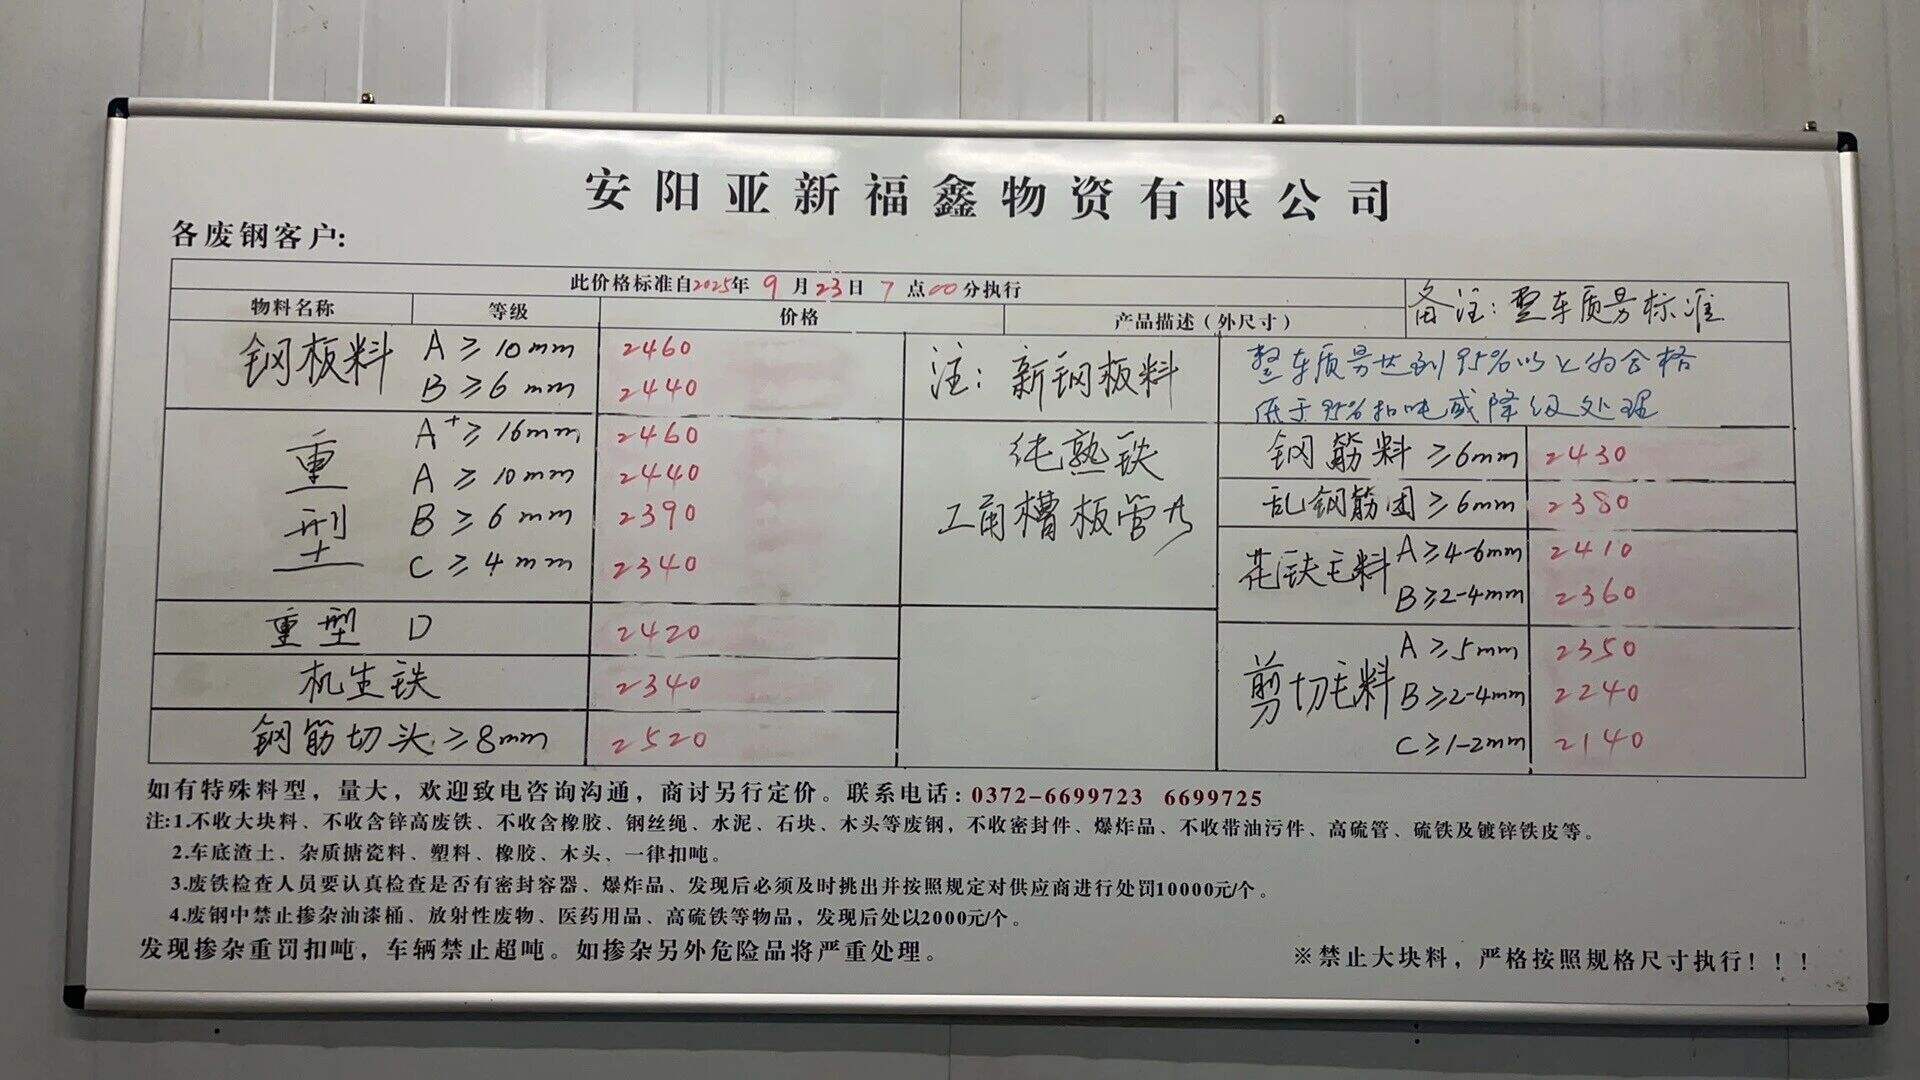 安阳亚新福鑫物资有限公司
各废钢客户:
此价格标准自2025年 9 月23日 7 点00分执行
备注:整车质量标准
物料名称 等级 价格 产品描述(外尺寸)
钢板料 A ≥ 10mm 2460
B ≥ 6mm 2440
注: 新钢板料
整车质量达到95%以上为合格
低于95%扣吨或降级处理
重型 A+ ≥ 16mm 2460
A ≥ 10mm 2440
B ≥ 6mm 2390
C ≥ 4mm 2340
纯熟铁
工角槽板管
钢筋料 ≥6mm 2430
乱钢筋团 ≥6mm 2380
花铁毛料 A≥4-6mm 2410
B≥2-4mm 2360
重型 D 2420
机生铁 2340
钢筋切头 ≥8mm 2520
剪切毛料 A ≥5mm 2350
B ≥2-4mm 2240
C ≥1-2mm 2140
如有特殊料型，量大，欢迎致电咨询沟通，商讨另行定价。联系电话:0372-6699723 6699725
注:1.不收大块料、不收含锌高废铁、不收含橡胶、钢丝绳、水泥、石块、木头等废钢，不收密封件、爆炸品、不收带油污件、高硫管、硫铁及镀锌铁皮等。
2.车底渣土、杂质搪瓷料、塑料、橡胶、木头、一律扣吨。
3.废铁检查人员要认真检查是否有密封容器、爆炸品、发现后必须及时挑出并按照规定对供应商进行处罚10000元/个。
4.废钢中禁止掺杂油漆桶、放射性废物、医药用品、高硫铁等物品，发现后处以2000元/个。
发现掺杂重罚扣吨，车辆禁止超吨。如掺杂另外危险品将严重处理。
※禁止大块料，严格按照规格尺寸执行！！！